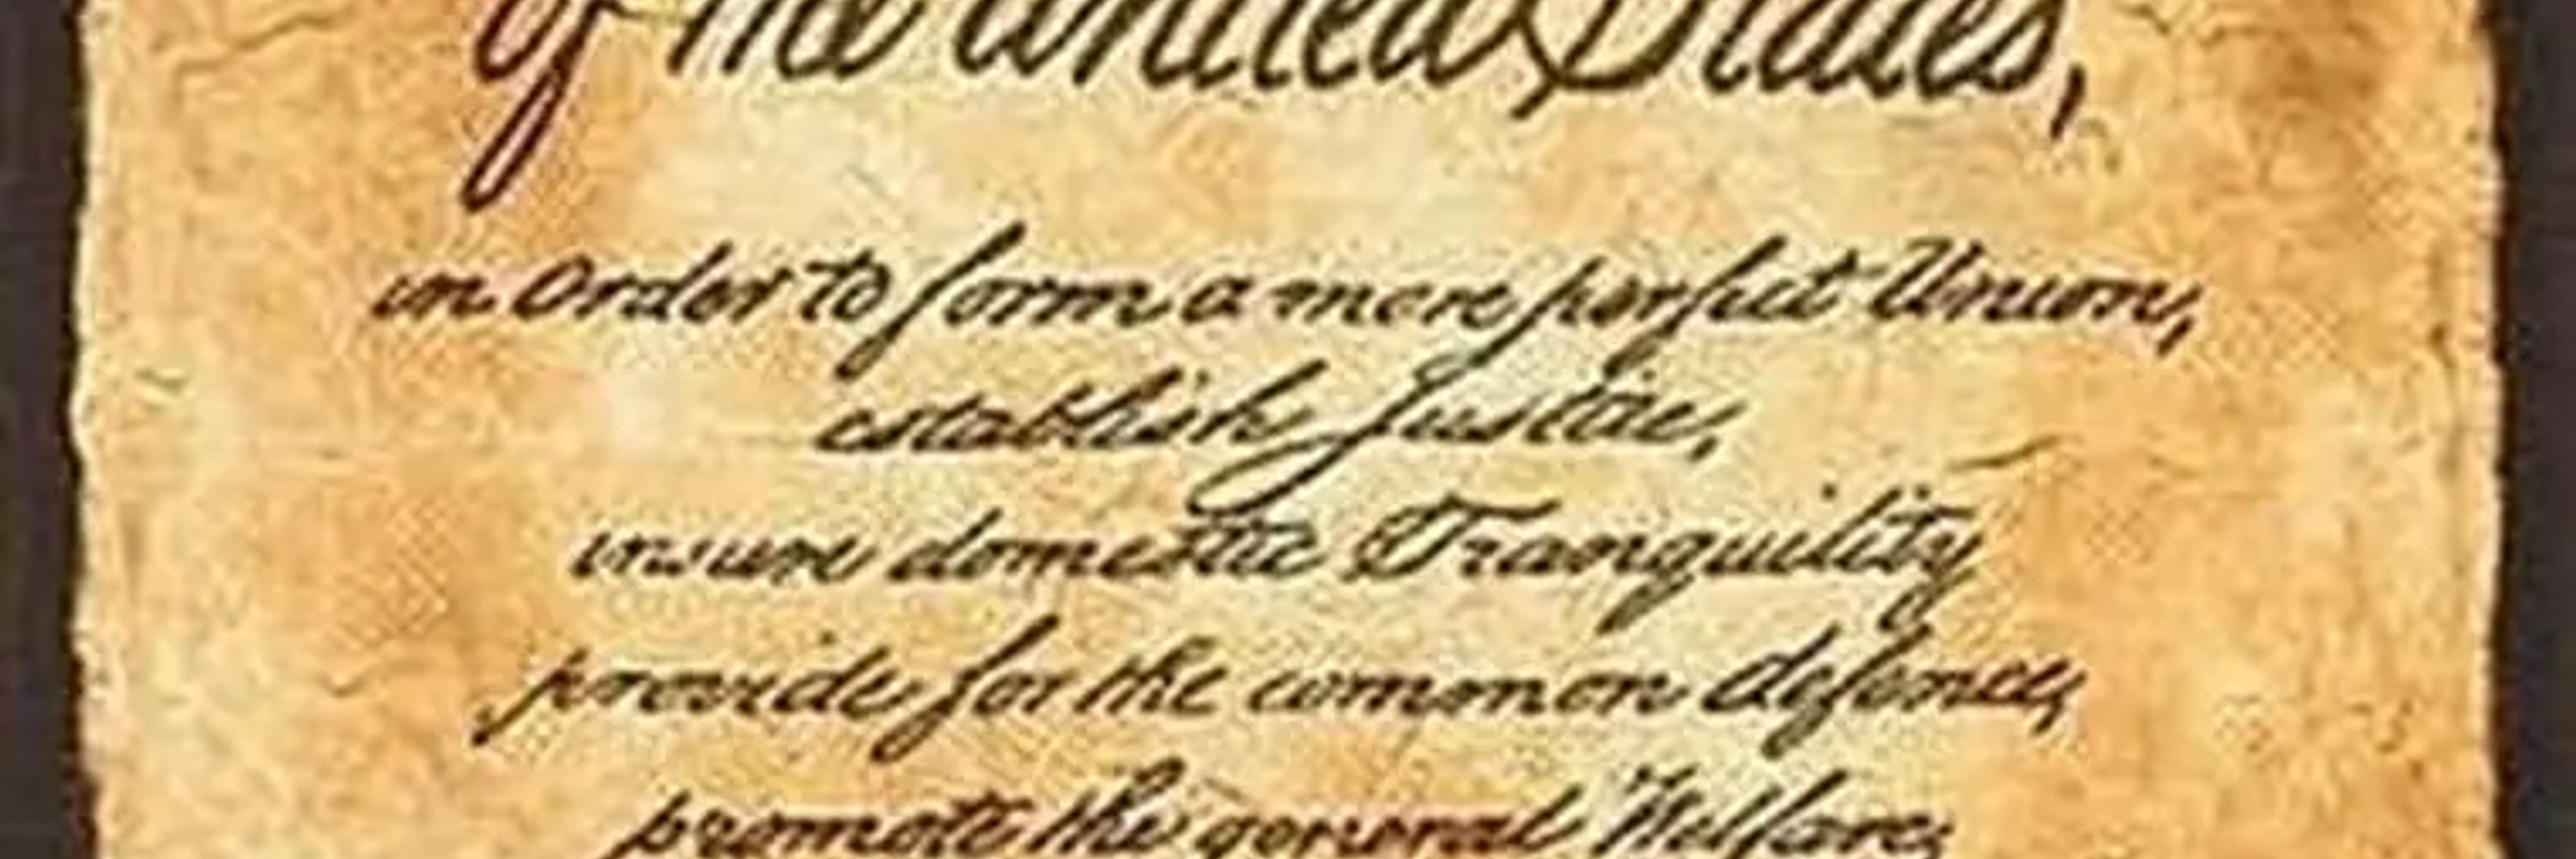 of the United States,
in Order to form a more perfect Union,
establish Justice,
insure domestic Tranquility
provide for the common defence,
promote the general Welfare,